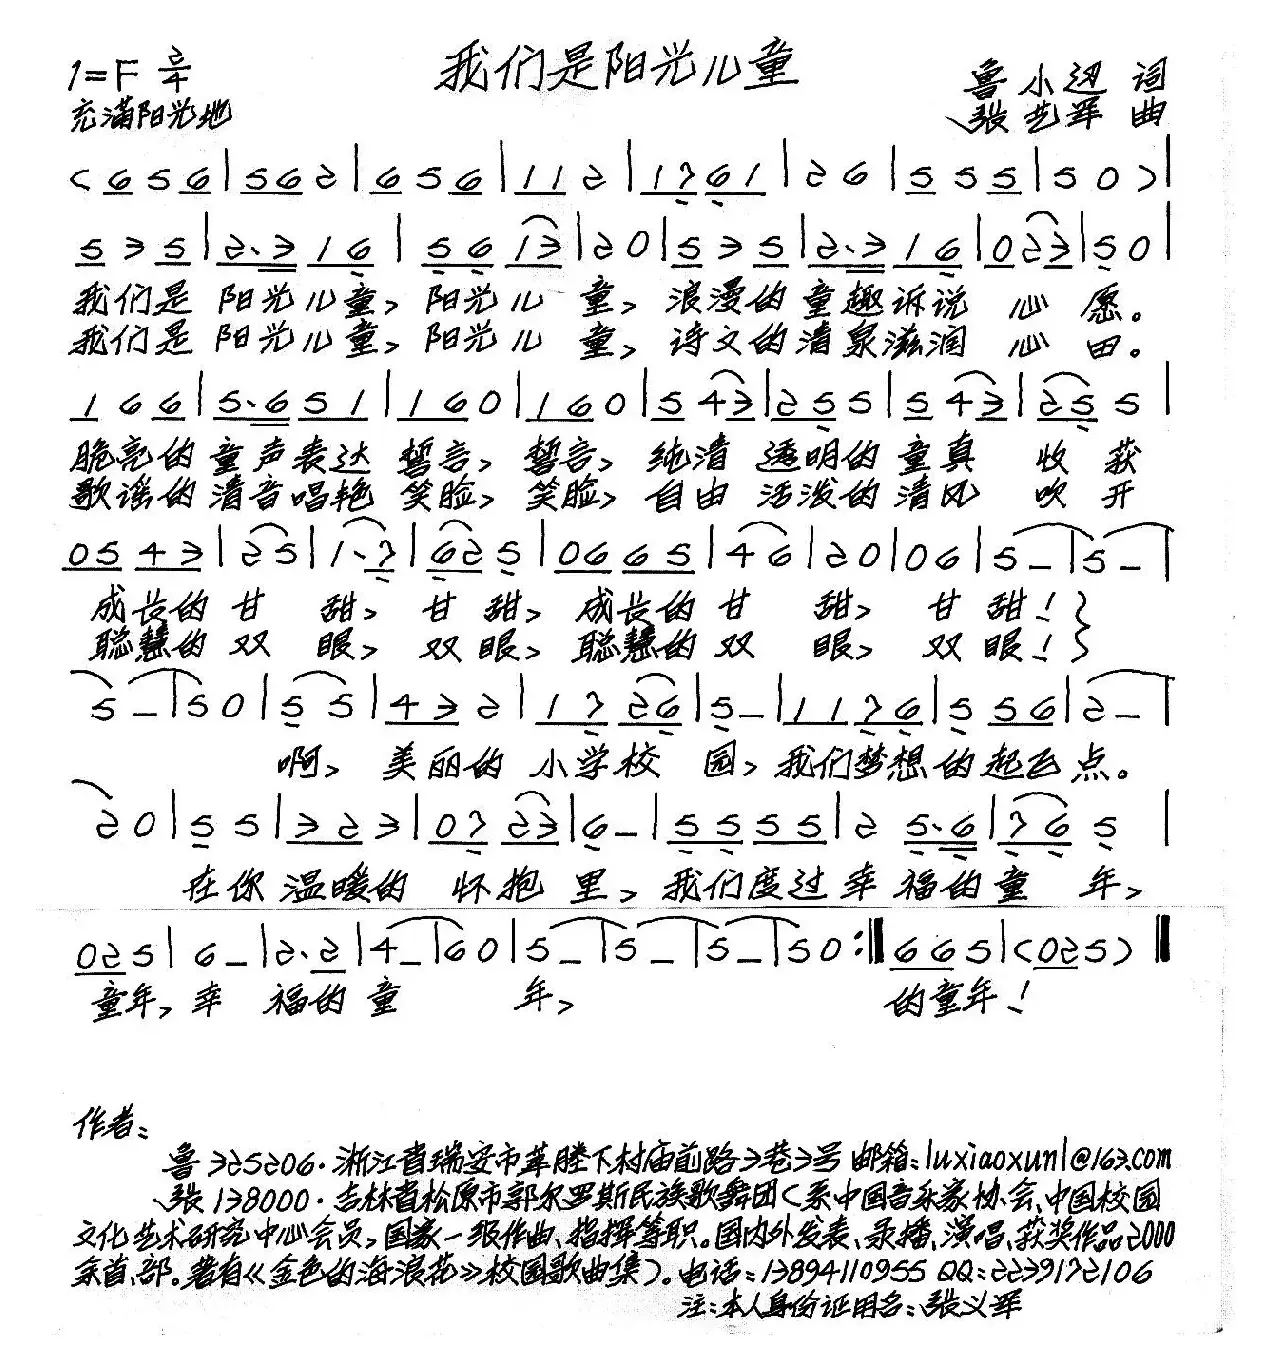 我们是阳光儿童
1=F 2/4
充满阳光地
鲁小迅 词
张艺军 曲
(6 5 6 | 5 6 2 | 6 5 6 | 1 1 2 | 1 7 6 1 | 2 6 | 5 5 5 | 5 0 ) |
5 3 5 | 2. 3 1 6 | 5 6 1 3 | 2 0 | 5 3 5 | 2. 3 1 6 | 0 2 3 | 5 0 |
我们是 阳光儿童, 阳光儿 童, 浪漫的童趣诉说 心 愿。
我们是 阳光儿童, 阳光儿 童, 诗文的清泉滋润 心 田。
1 6 6 | 5. 6 5 1 | 1 6 0 | 1 6 0 | 5 4 3 | 2 5 5 | 5 4 3 | 2 5 5 |
脆亮的 童声表达 誓言, 誓言, 纯清 透明的 童真 收 获
歌谣的 清音唱艳 笑脸, 笑脸, 自由 活泼的 清风 吹 开
0 5 4 3 | 2 5 | 1. 7 | 6 2 5 | 0 6 6 5 | 4 6 | 2 0 | 0 6 | 5 – | 5 – |
成长的 甘 甜, 甘 甜, 成长的 甘 甜, 甘 甜! }
聪慧的 双 眼, 双 眼, 聪慧的 双 眼, 双 眼! }
5 – | 5 0 | 5 5 | 4 3 2 | 1 7 2 6 | 5 – | 1 1 7 6 | 5 5 6 | 2 – |
啊, 美丽的 小学校 园, 我们梦想的起飞点。
2 0 | 5 5 | 3 2 3 | 0 7 2 3 | 6 – | 5 5 5 5 | 2 5. 6 | 7 6 5 |
在你 温暖的 怀抱 里, 我们度过幸 福的童 年,
0 2 5 | 6 – | 2. 2 | 4 – | 6 0 | 5 – | 5 – | 5 – | 5 0 :‖ 6 6 5 | (0 2 5) ‖
童年, 幸 福的童 年, 的童年!
作者:
鲁 325206. 浙江省瑞安市莘塍下村庙前路3巷3号 邮箱:luxiaoxun1@163.com
张 138000. 吉林省松原市郭尔罗斯民族歌舞团(系中国音乐家协会、中国校园
文化艺术研究中心会员, 国家一级作曲、指挥等职。国内外发表、录播、演唱、获奖作品2000
余首、部。著有《金色的海浪花》校园歌曲集)。电话:13894110955 QQ:2239172106
注:本人身份证用名:张义军